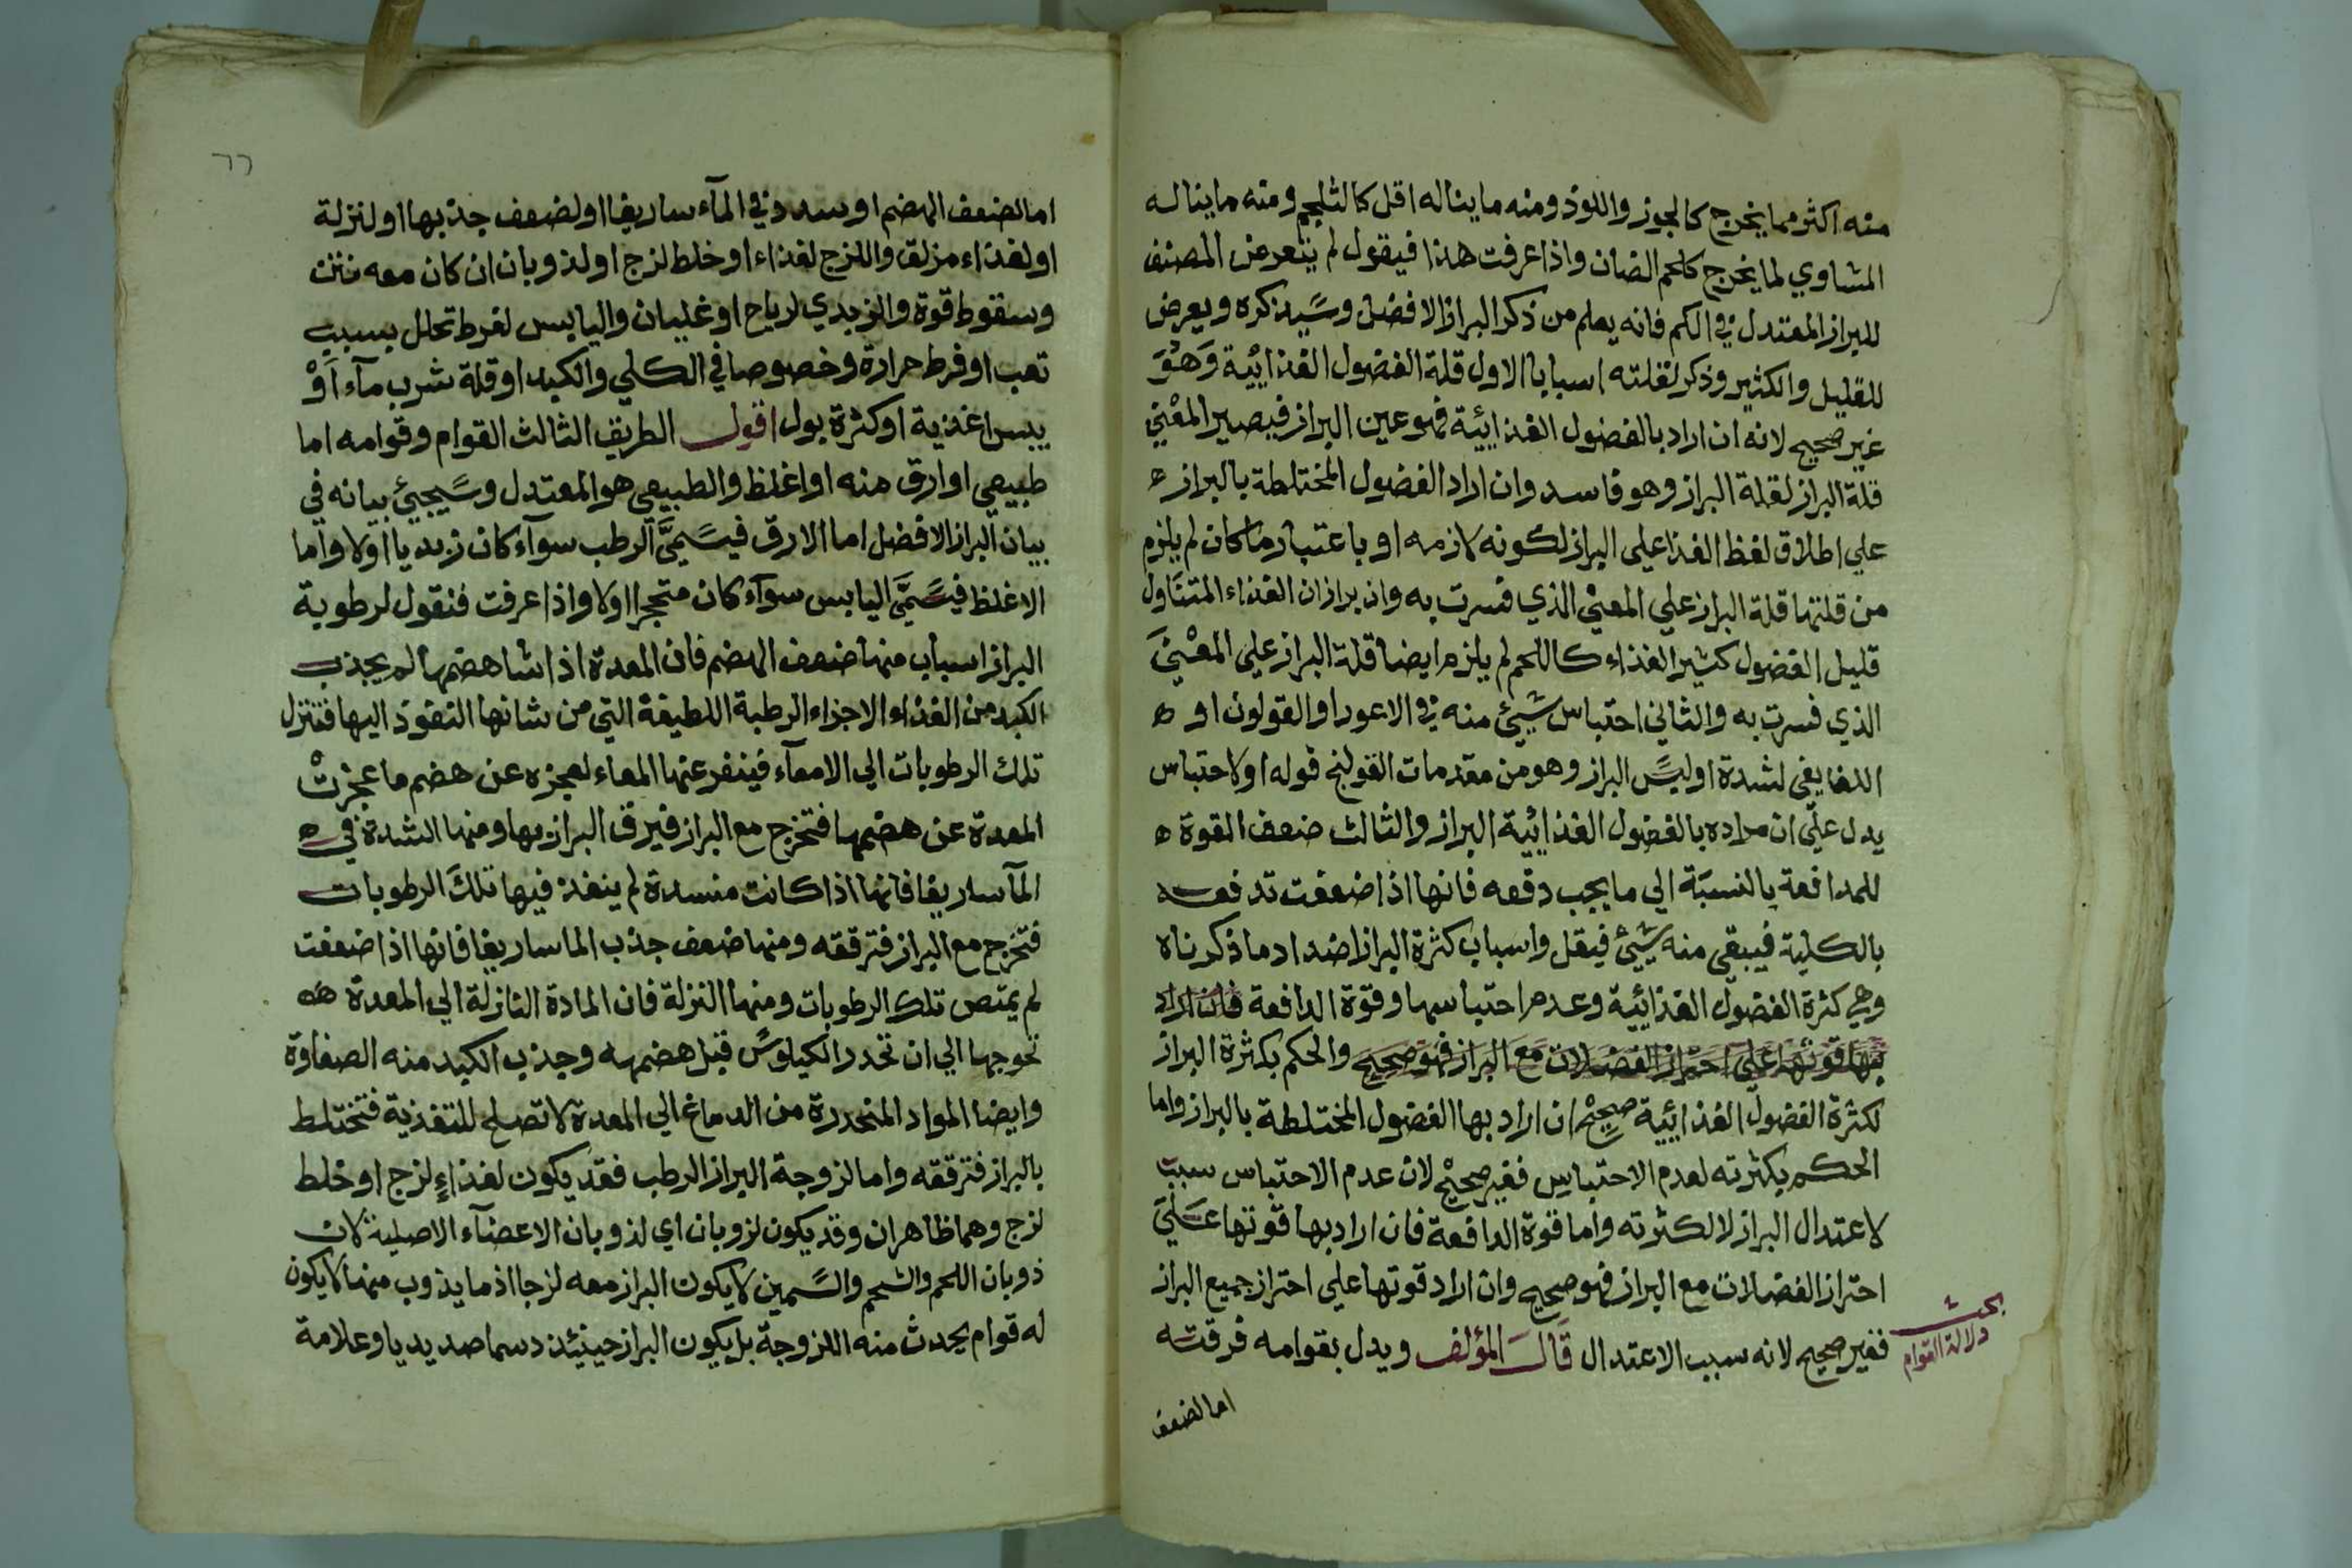 منه اكثر مما يخرج كالجوز واللوز ومنه ما يناله اقل كالثلجم ومنه ما يناله
المساوي لما يخرج كلحم الضان واذا عرفت هذا فيقول لم يتعرض المصنف
للبراز المعتدل في الكم فانه يعلم من ذكر البراز الافضل وسيذكره ويعرض
للقليل والكثير وذكر لقلته اسبابا الاول قلة الفضول الغذائية وهو
غير صحيح لانه ان اراد بالفضول الغذائية فهو عين البراز فيصير المعني
قلة البراز لقلة البراز وهو فاسد وان اراد الفضول المختلطة بالبراز ه
علي اطلاق لفظ الغذا علي البراز لكونه لازمه او باعتبار ما كان لم يلزم
من قلتها قلة البراز علي المعني الذي فسرت به وان برازان الغذاء المتناول
قليل الفضول كثير الغذاء كاللحم لم يلزم ايضا قلة البراز علي المعني
الذي فسرت به والثاني احتباس شيئ منه في الاعور او القولون او ه
اللفايفي لشدة او ليس البراز وهو من مقدمات القولنج قوله او لاحتباس
يدل علي ان مراده بالفضول الغذائية البراز والثالث ضعف القوة ه
للمدافعة بالنسبة الي ما يجب دفعه فانها اذا ضعفت تدفعه
بالكلية فيبقي منه شيئ فيقل واسباب كثرة البراز اضداد ما ذكرناه
وهي كثرة الفضول الغذائية وعدم احتباسها وقوة الدافعة فان اراد
بها قوتها علي احتراز الفضلات مع البراز فهو صحيح والحكم بكثرة البراز
لكثرة الفضول الغذائية صحيح ان اراد بها الفضول المختلطة بالبراز واما
الحكم بكثرته لعدم الاحتباس فغير صحيح لان عدم الاحتباس سبب
لاعتدال البراز لا لكثرته واما قوة الدافعة فان اراد بها قوتها علي
احتراز الفضلات مع البراز فهو صحيح وان اراد قوتها علي احتراز جميع البراز
فغير صحيح لانه سبب الاعتدال قال المؤلف ويدل بقوامه فرقته
بحث
دلالة القوام
اما لضعف
٦٦
اما لضعف الهضم او سدد في الماساريقا او لضعف جذبها او لنزلة
او لغذاء مزلق واللزج لغذاء او خلط لزج او لذوبان ان كان معه نتن
وسقوط قوة والزبدي لرياح او غليان واليابس لفرط تحلل بسبب
تعب او فرط حرارة وخصوصا في الكلي والكبد او قلة شرب مآء او
يبس اغذية او كثرة بول اقول الطريق الثالث القوام وقوامه اما
طبيعي او ارق منه او اغلظ والطبيعي هو المعتدل وسيجيئ بيانه في
بيان البراز الافضل اما الارق فيسمي الرطب سوآء كان زبديا اولا واما
الاغلظ فيسمي اليابس سوآء كان متحجرا اولا واذا عرفت فنقول لرطوبة
البراز اسباب منها ضعف الهضم فان المعدة اذا شا هضمها لم يجذب
الكبد من الغذاء الاجزاء الرطبة اللطيفة التي من شانها النفوذ اليها فتنزل
تلك الرطوبات الي الامعآء فينفر عنها المعاء لعجزه عن هضم ما عجزت
المعدة عن هضمها فتخرج مع البراز فيرق البراز بها ومنها الشدة في ه
المآساريقا فانها اذا كانت منسدة لم ينفذ فيها تلك الرطوبات
فتخرج مع البراز فترققه ومنها ضعف جذب الماساريقا فانها اذا ضعفت
لم يمتص تلك الرطوبات ومنها النزلة فان المادة النازلة الي المعدة ه
تحوجها الي ان تحدر الكيلوس قبل هضمه وجذب الكبد منه الصفاوة
وايضا المواد المنحدرة من الدماغ الي المعدة لا تصلح للتغذية فتختلط
بالبراز فترققه واما لزوجة البراز الرطب فقد يكون لغذاء لزج او خلط
لزج وهما ظاهران وقد يكون لزوبان اي لذوبان الاعضآء الاصلية لان
ذوبان اللحم والشحم والسمين لا يكون البراز معه لزجا اذ ما يذوب منها لا يكون
له قوام يحدث منه اللزوجة بل يكون البراز حينئذ دسما صديديا وعلامة